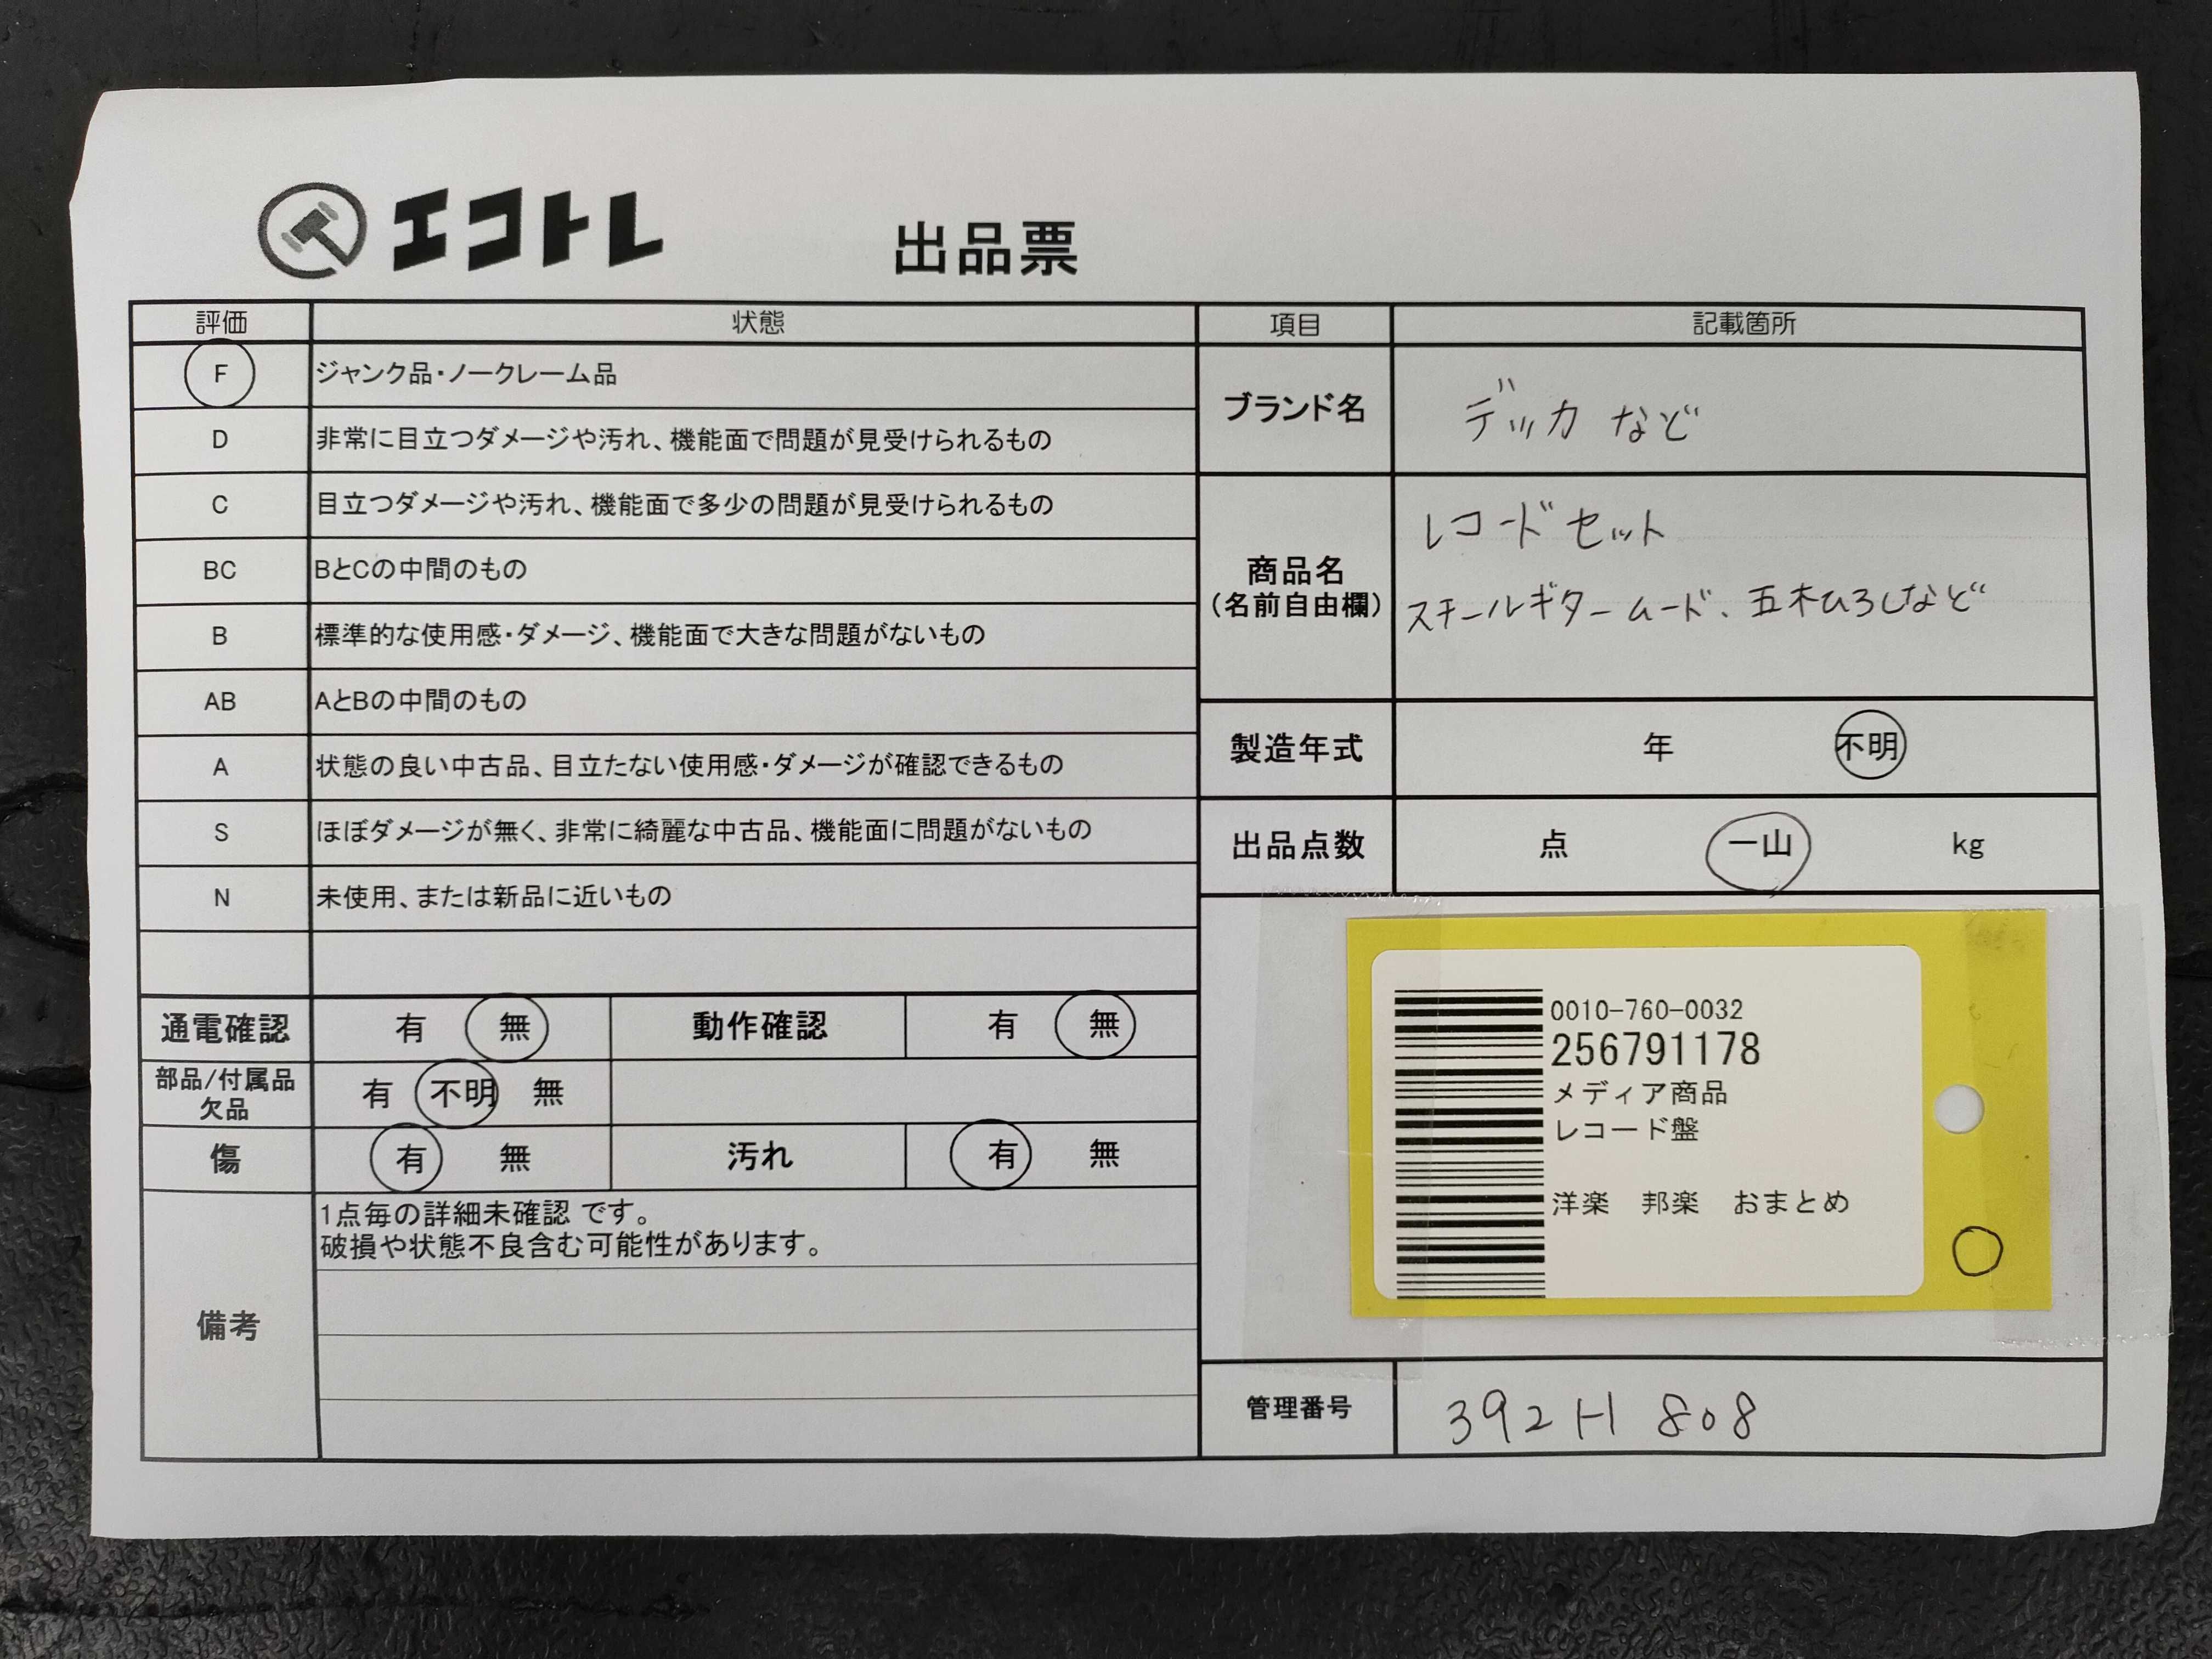 エコトレ
出品票
評価 状態 項目 記載箇所
F ジャンク品・ノークレーム品
D 非常に目立つダメージや汚れ、機能面で問題が見受けられるもの
C 目立つダメージや汚れ、機能面で多少の問題が見受けられるもの
BC BとCの中間のもの
B 標準的な使用感・ダメージ、機能面で大きな問題がないもの
AB AとBの中間のもの
A 状態の良い中古品、目立たない使用感・ダメージが確認できるもの
S ほぼダメージが無く、非常に綺麗な中古品、機能面に問題がないもの
N 未使用、または新品に近いもの
通電確認 有 無 動作確認 有 無
部品/付属品
欠品
有 不明 無
傷 有 無 汚れ 有 無
備考
1点毎の詳細未確認 です。
破損や状態不良含む可能性があります。
ブランド名 デッカ など
商品名
(名前自由欄)
レコードセット
スチールギタームード、五木ひろしなど
製造年式 年 不明
出品点数 点 一山 kg
0010-760-0032
256791178
メディア商品
レコード盤
洋楽 邦楽 おまとめ
管理番号 392H 808